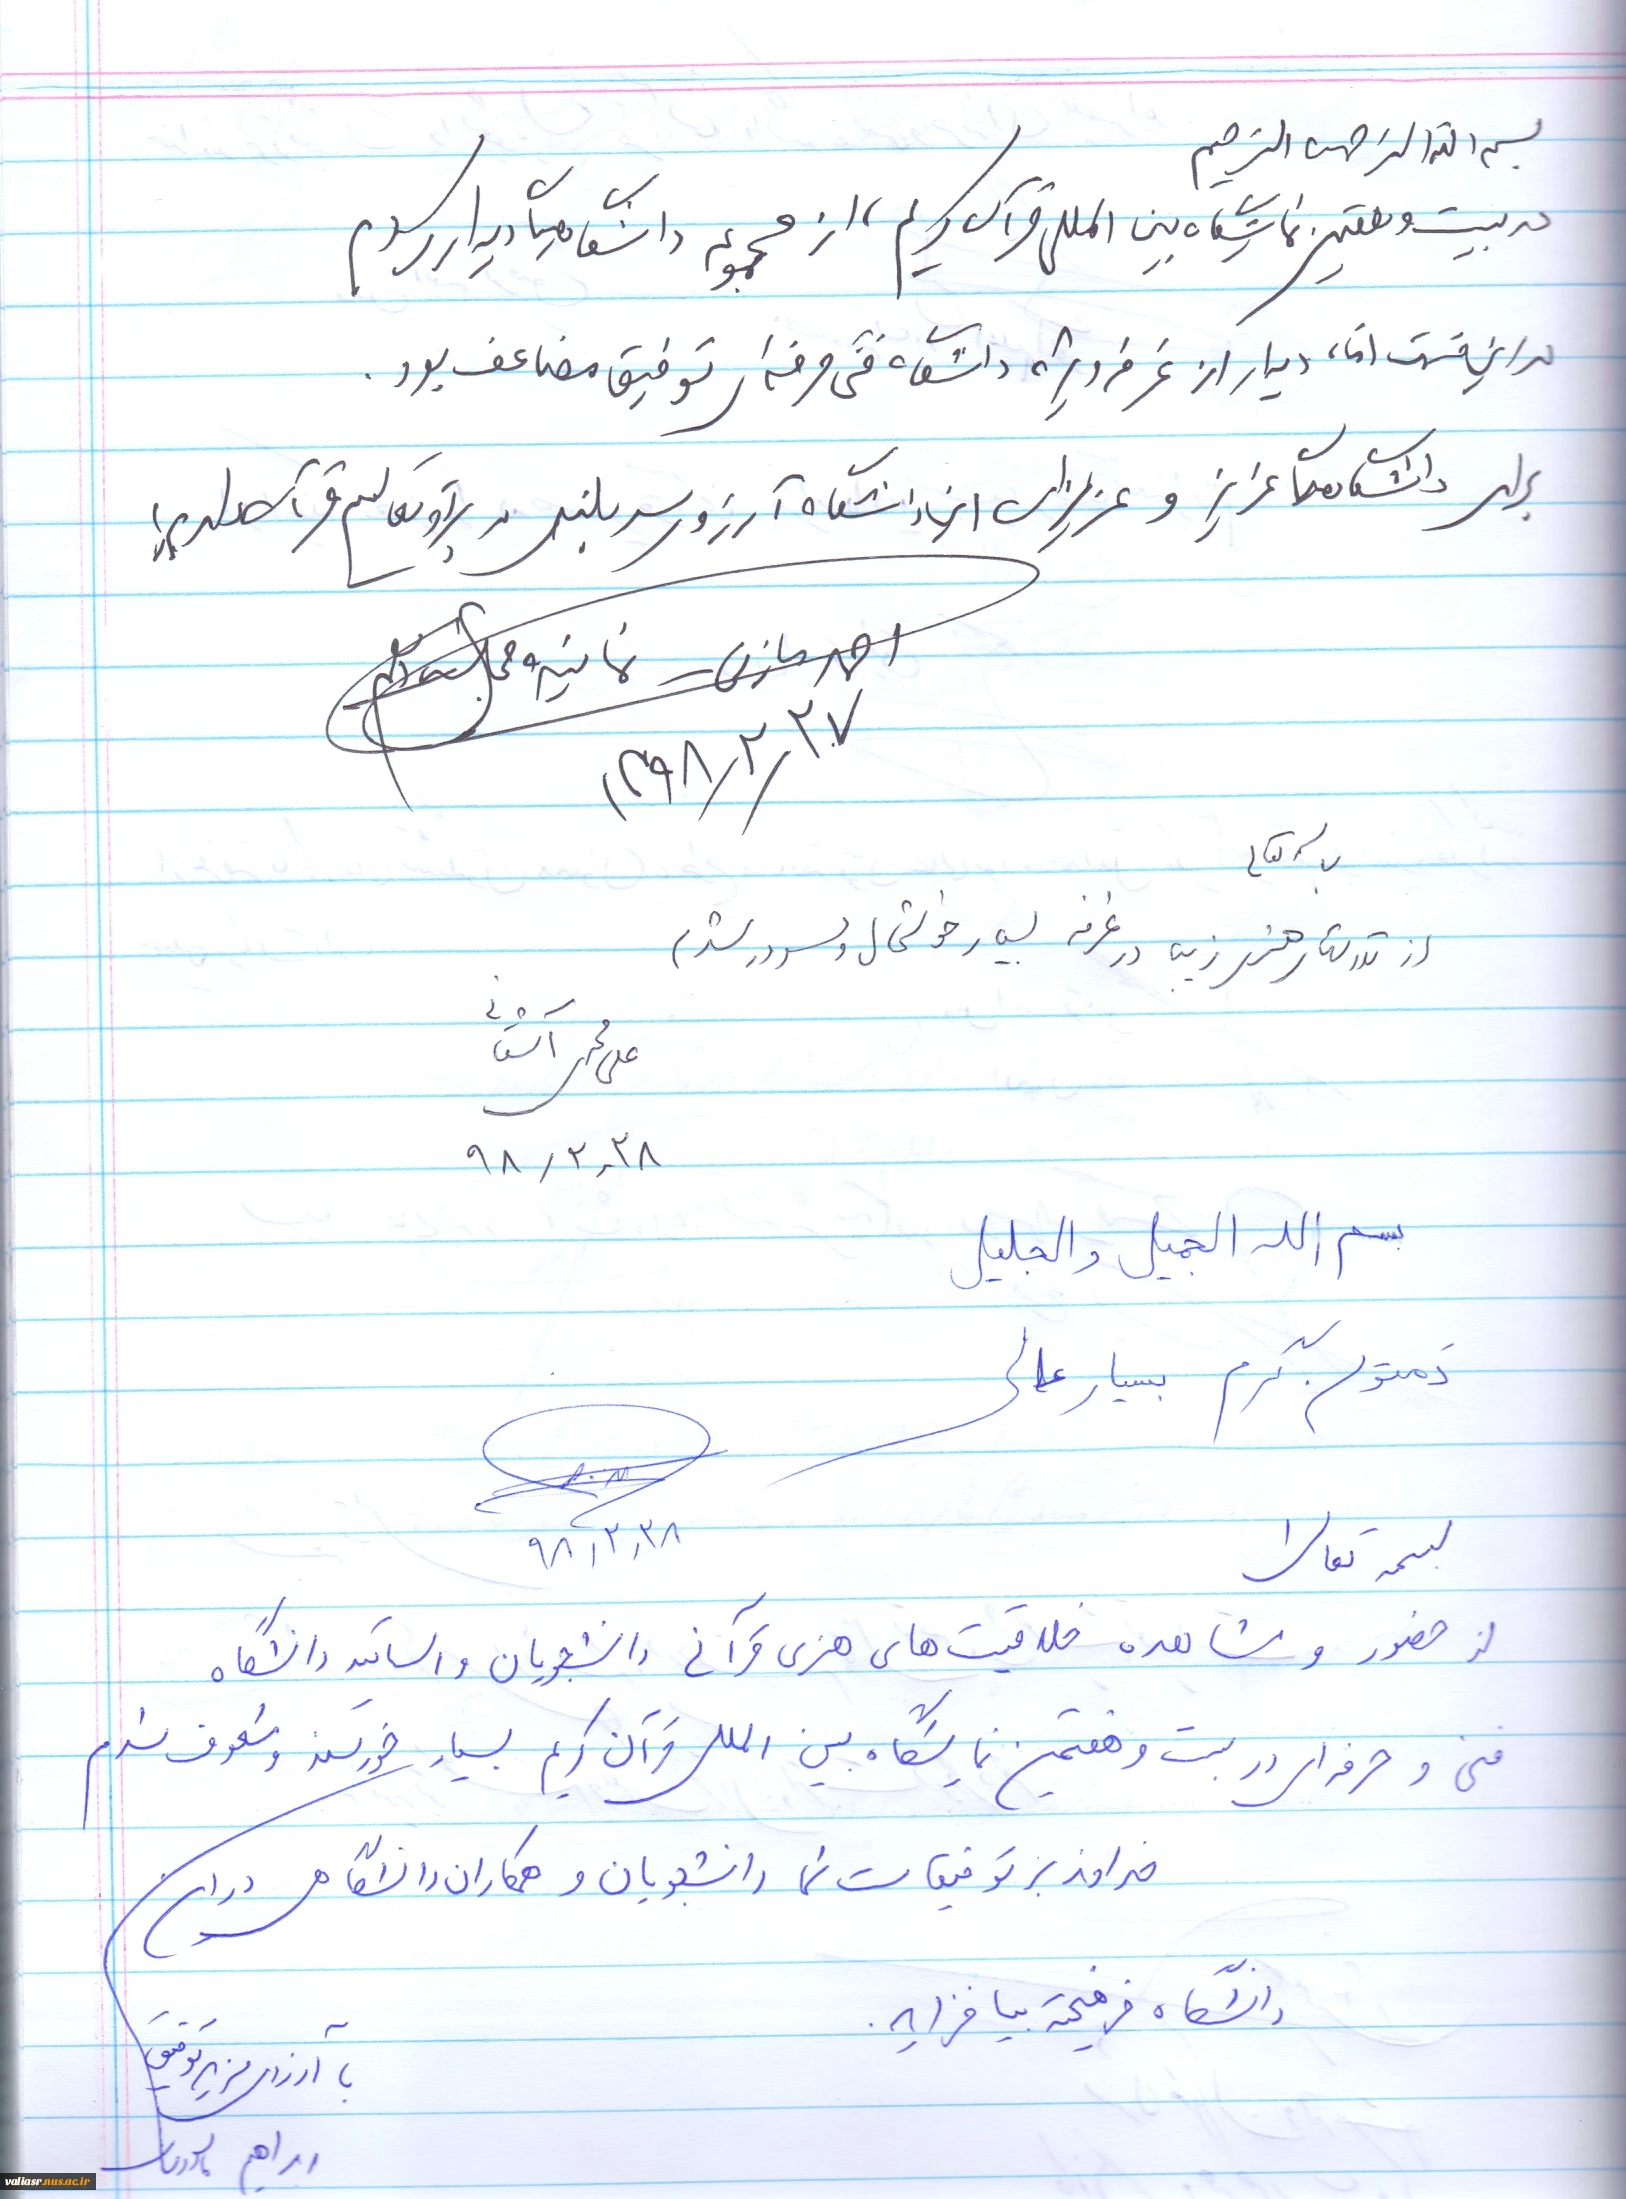 بسم الله الرحمن الرحیم
در بیست و هفتمین نمایشگاه بین المللی قرآن کریم، از مجموعه دانشگاه‌ها دیدار کردم
در این قسمت اما، دیدار از غرفه ویژه دانشگاه فنی حرفه‌ای توفیق مضاعف بود.
برای دانشگاه‌ها عزیز و عزیزان این دانشگاه آرزوی سربلندی در پرتو تعالیم قرآن
احمد مازنی - نماینده مجلس
۱۳۹۸/۲/۲۷
باسمه تعالی
از کارهای هنری زیبا در غرفه بسیار خوشحال و مسرور شدم
علی محمد آشنانی
۹۸/۲/۲۸
بسم الله الجمیل والجلیل
دمتون گرم بسیار عالی
۹۸/۲/۲۸
بسمه تعالی
از حضور و مشاهده خلاقیت‌های هنری قرآنی دانشجویان و اساتید دانشگاه
فنی و حرفه‌ای در بیست و هفتمین نمایشگاه بین المللی قرآن کریم بسیار خورسند و مشعوف شدم
خداوند بر توفیقات شما دانشجویان و همکاران دانشگاهی در این
دانشگاه فرهیخته بیافزاید.
با آرزوی مزید توفیق
ابراهیم
valiasr.nus.ac.ir